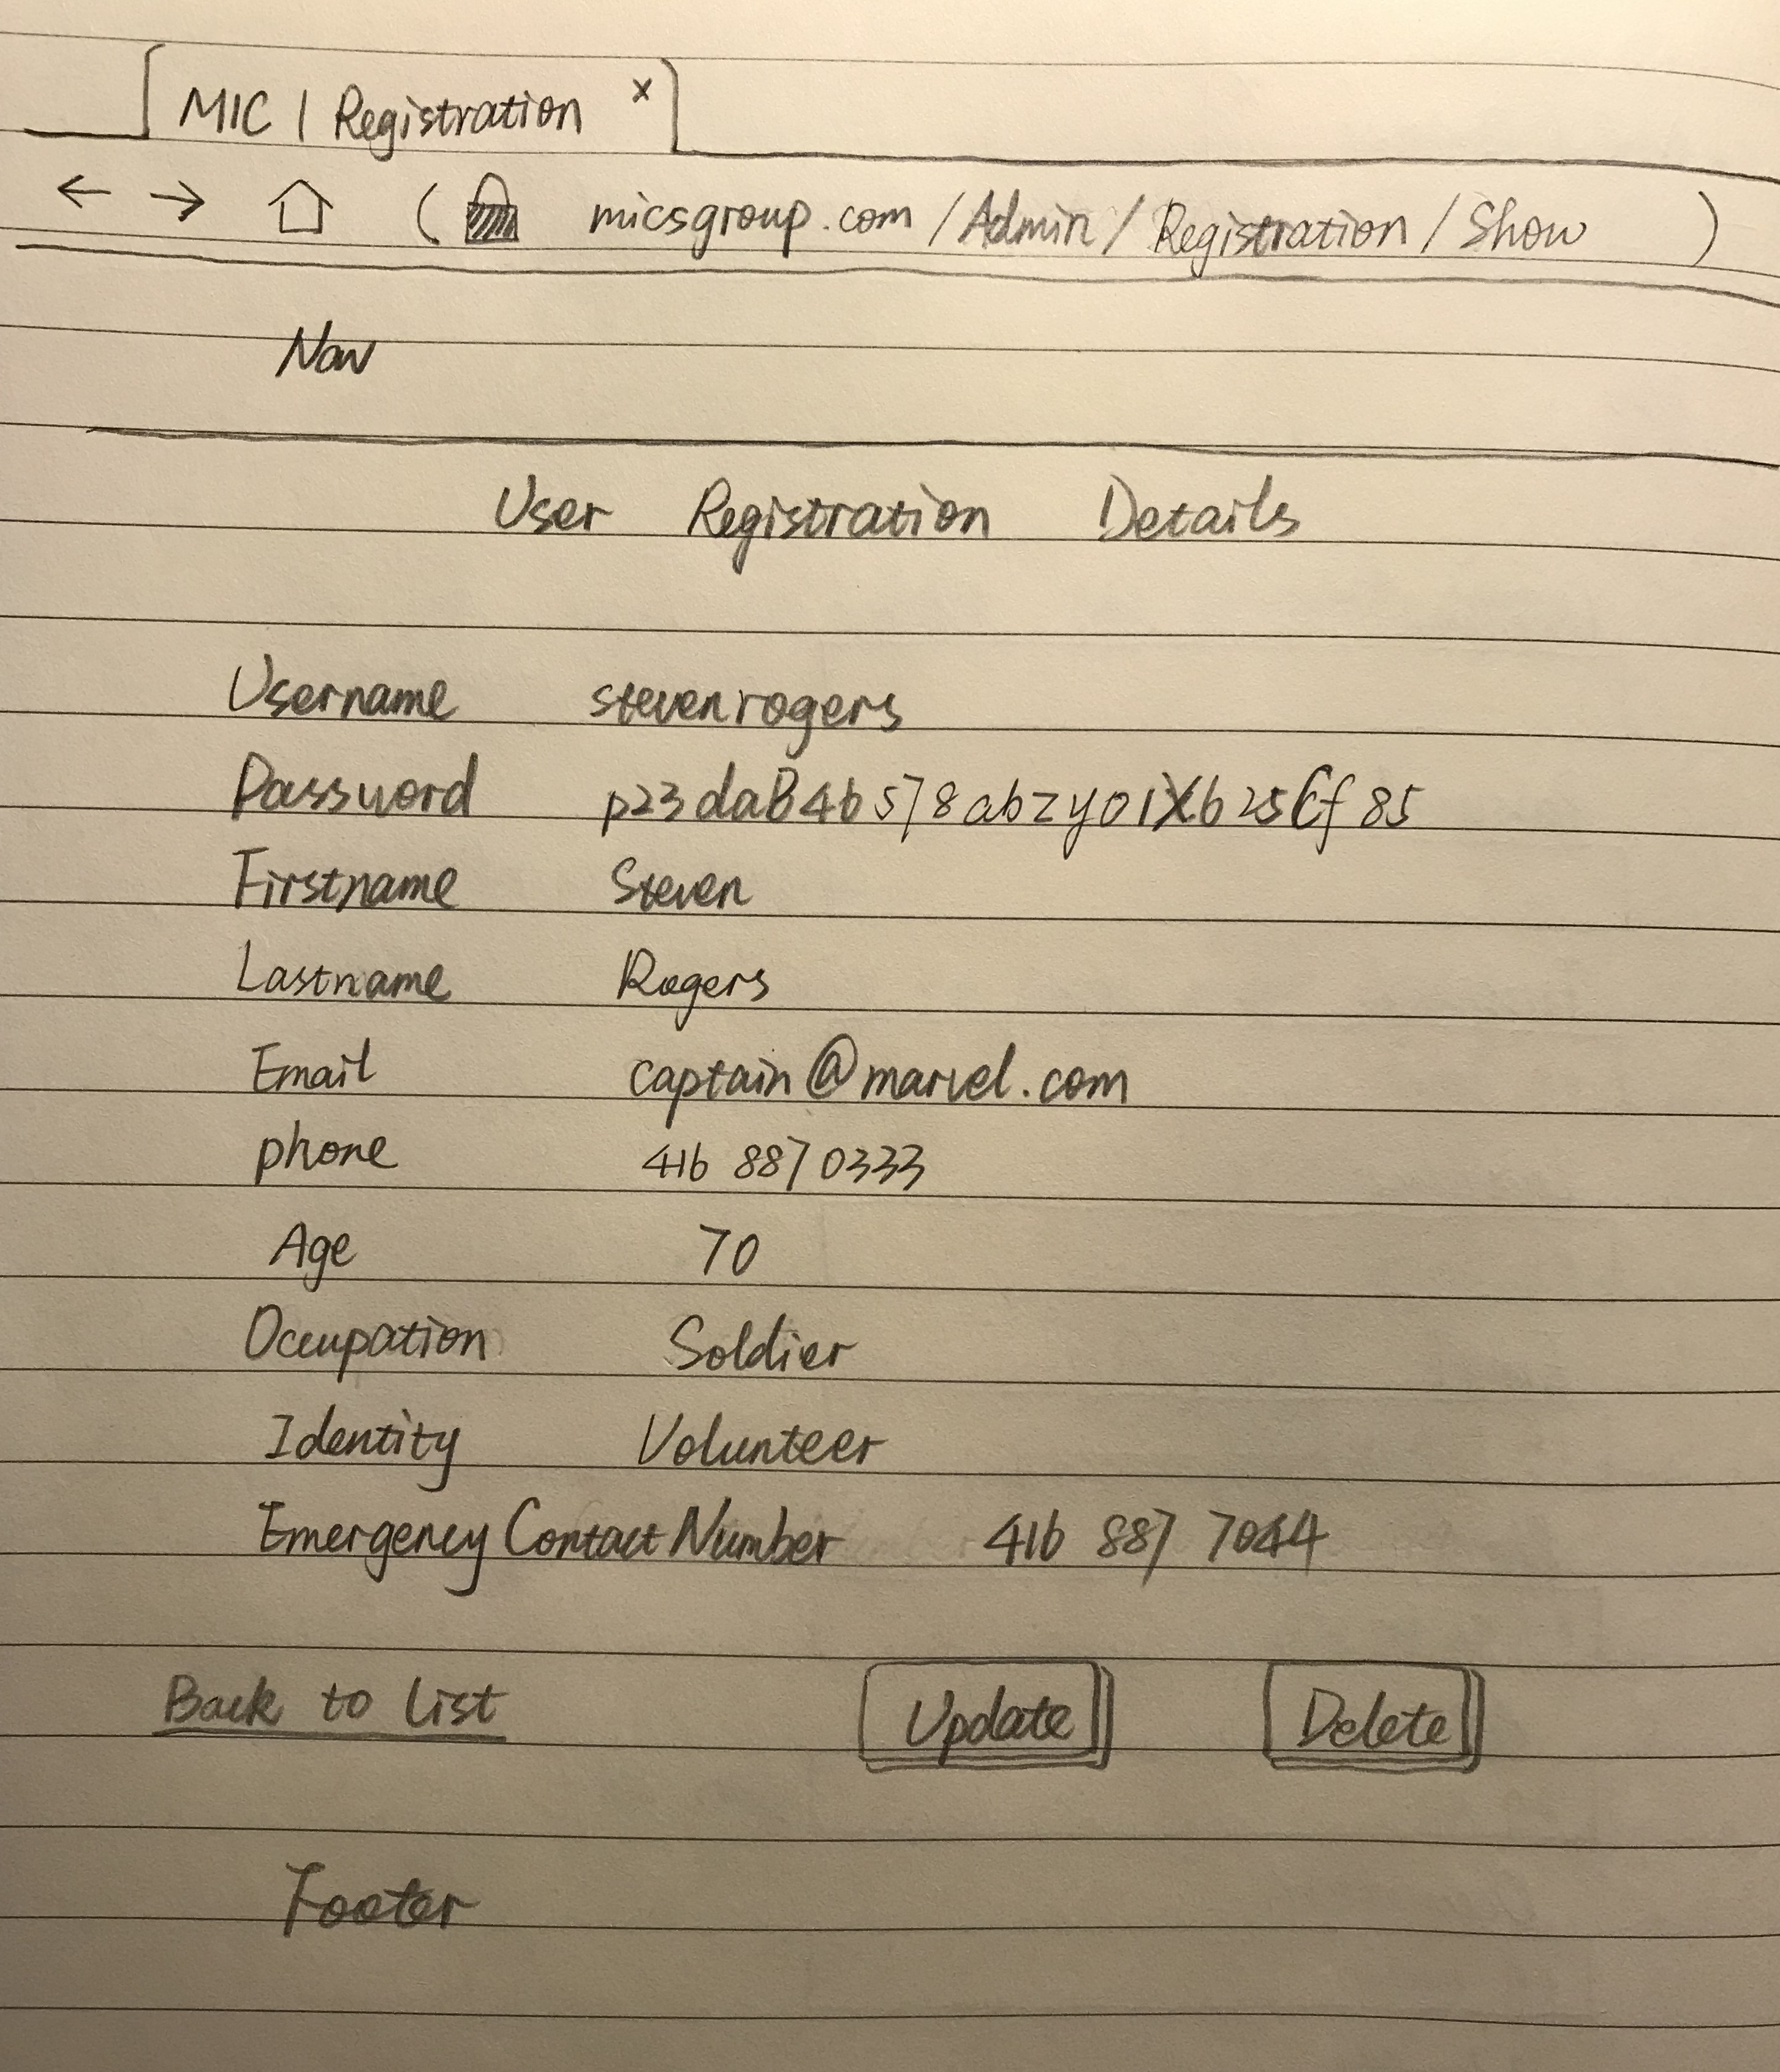 MIC | Registration x
micsgroup.com/Admin/Registration/Show
Nav
User Registration Details
Username stevenrogers
Password p23daB4b578abzy01Xb25Cf85
Firstname Steven
Lastname Rogers
Email captain@marvel.com
phone 416 887 0333
Age 70
Occupation Soldier
Identity Volunteer
Emergency Contact Number 416 887 7044
Back to List Update Delete
Footer